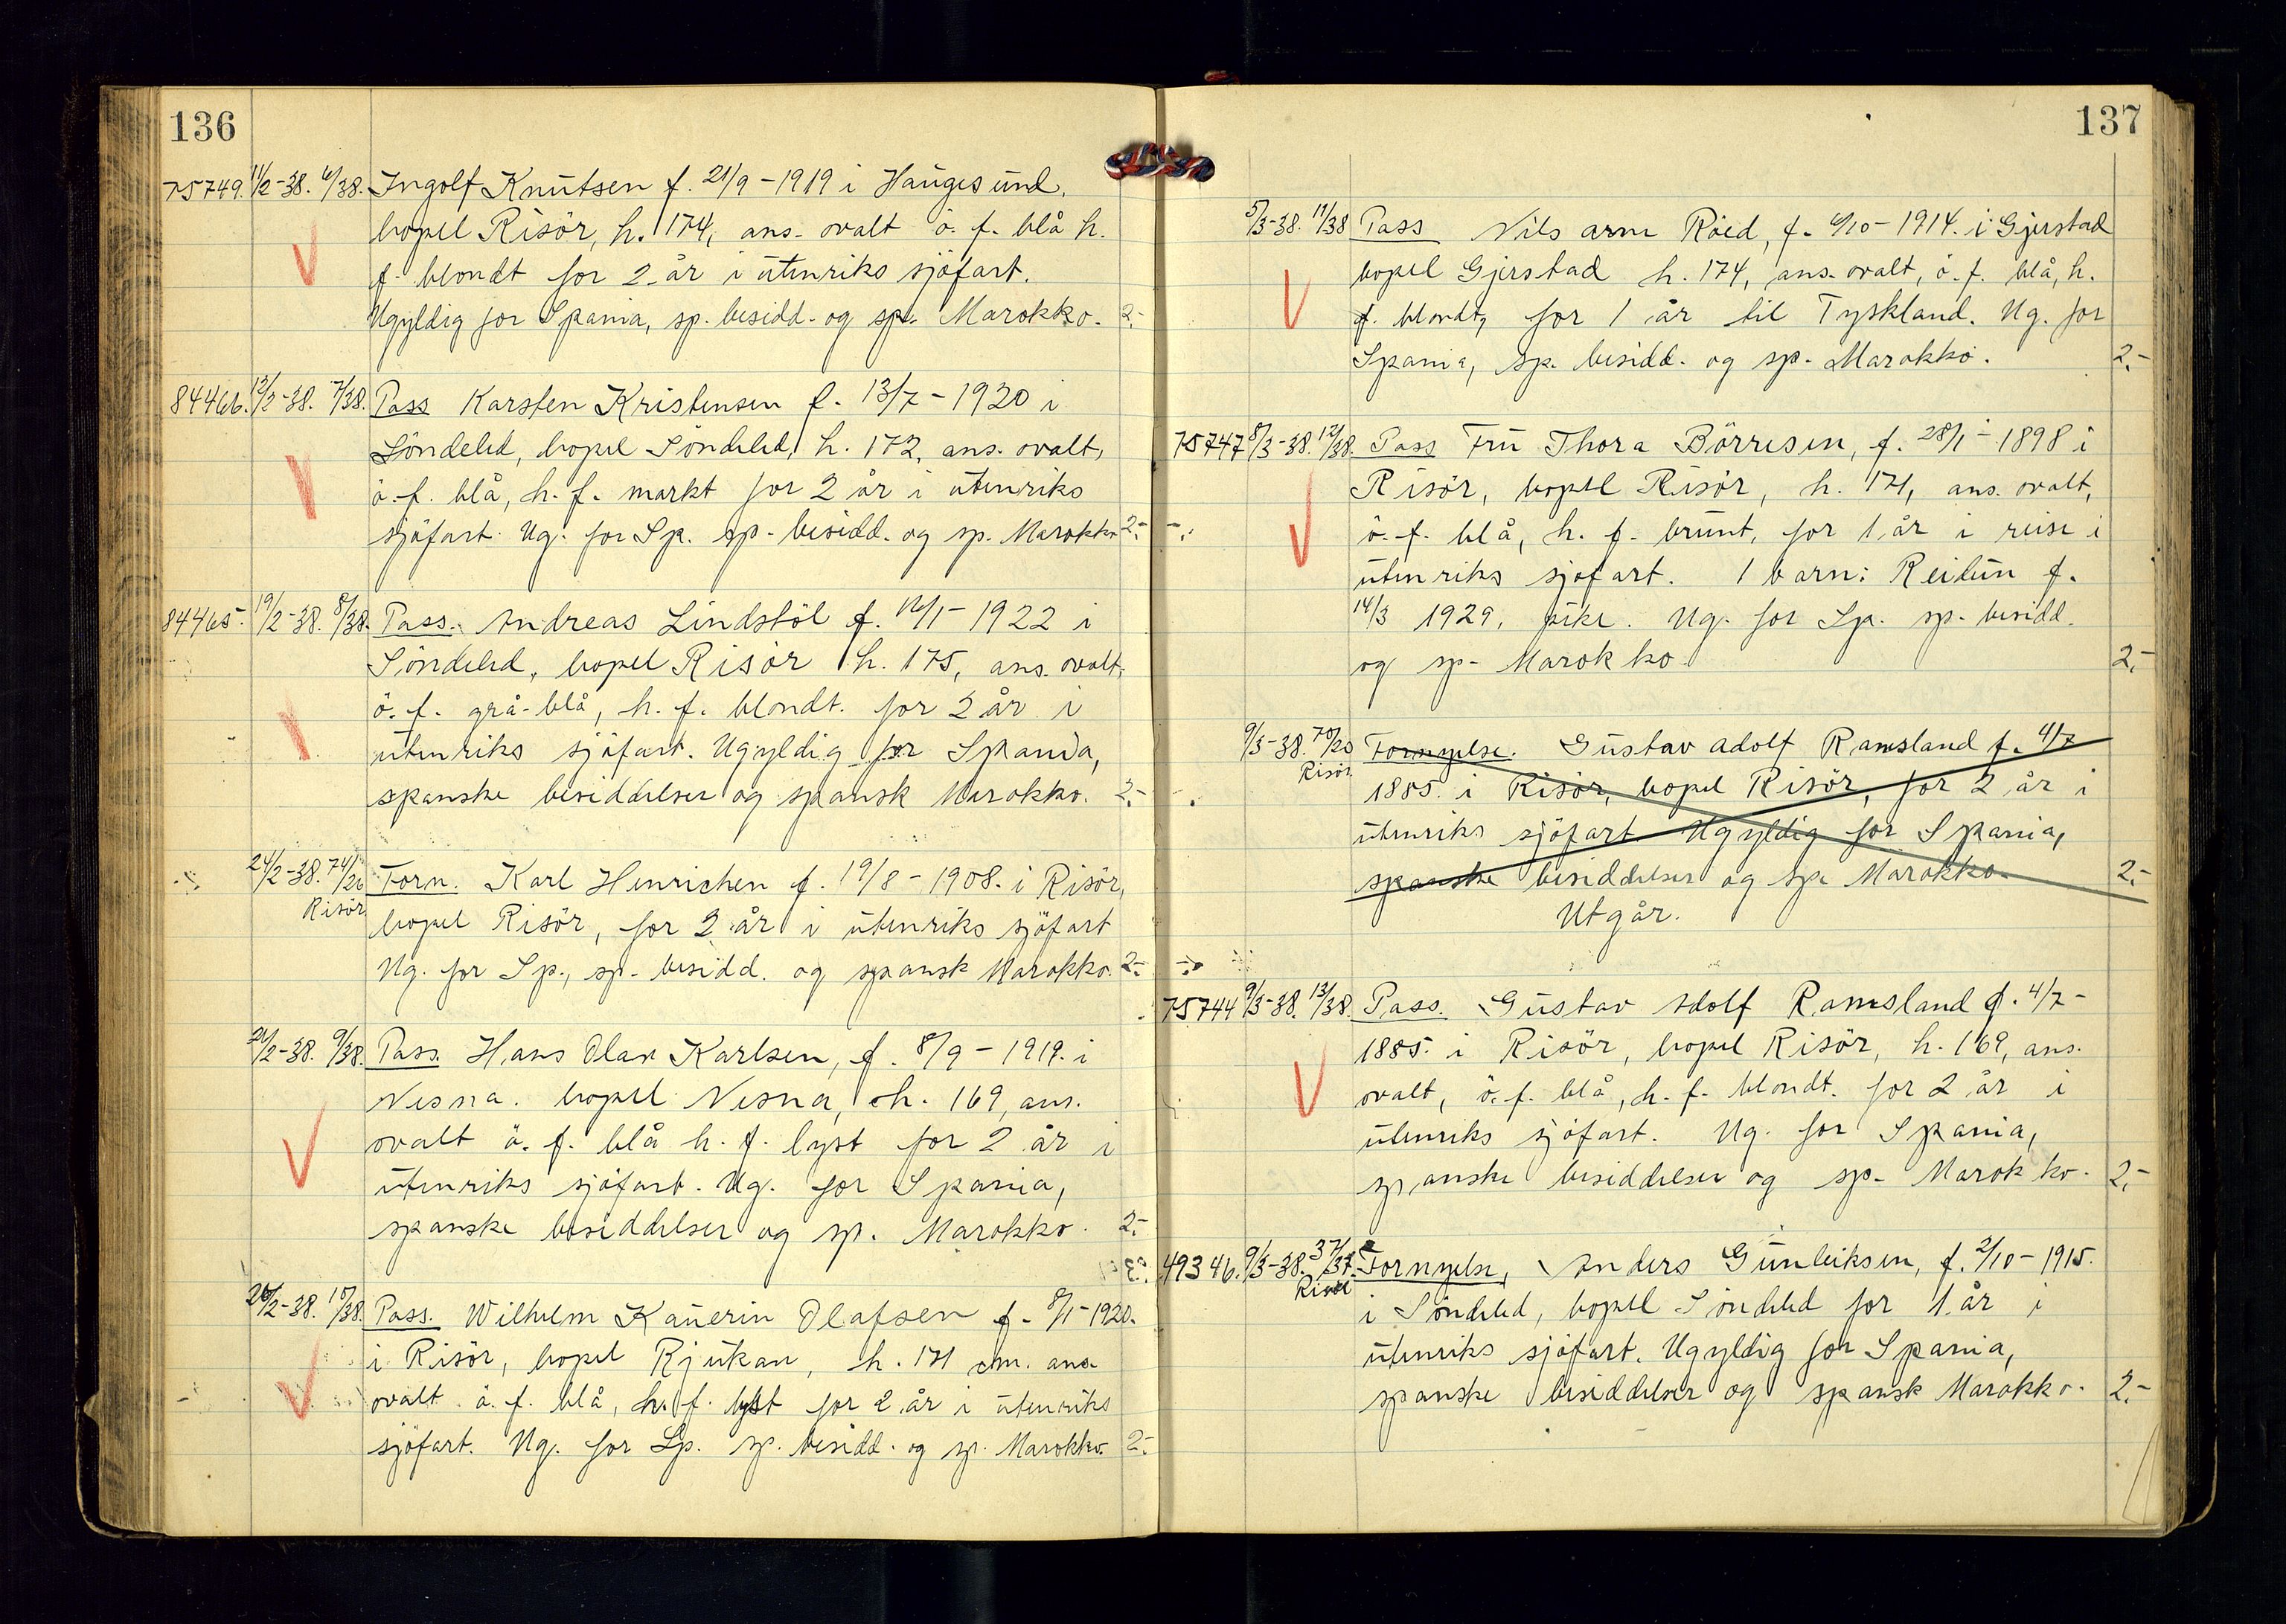 136
75749. 11/2-38. 6/38. Ingolf Knutsen f. 21/9-1919 i Haugesund,
bopel Risör, h. 174, ans. ovalt ö. f. blå h.
f. blondt for 2 år i utenriks sjöfart.
Ugyldig for Spania, sp. besidd. og sp. Marokko. 2.-
84466. 12/2-38. 7/38. Pass Karsten Kristensen f. 13/7-1920 i
Söndeled, bopel Söndeled, h. 172, ans. ovalt,
ö. f. blå, h. f. mørkt for 2 år i utenriks
sjöfart. Ug. for Sp. sp. besidd. og sp. Marokko 2.-
84465. 19/2-38. 8/38. Pass. Andreas Lindstöl f. 12/1-1922 i
Söndeled, bopel Risör h. 175, ans. ovalt,
ö. f. grå-blå, h. f. blondt. for 2 år i
utenriks sjöfart. Ugyldig for Spania,
spanske besiddelser og spansk Marokko. 2.-
24/2-38. 74/26 Forn. Karl Henrichen f. 19/8-1908. i Risör,
Risör bopel Risör, for 2 år i utenriks sjöfart
Ug. for Sp., sp. besidd. og spansk Marokko. 2.-
24/2-38. 9/38. Pass. Hans Olav Karlsen, f. 8/9-1919. i
Nesna. bopel Nesna, h. 169, ans.
ovalt ö. f. blå h. f. lyst for 2 år i
utenriks sjöfart. Ug. for Spania,
spanske besiddelser og sp. Marokko. 2.-
26/2-38. 10/38. Pass. Wilhelm Kauerin Olafsen f. 8/1-1920.
i Risör, bopel Rjukan, h. 171 cm. ans
ovalt ö. f. blå, h. f. lyst for 2 år i utenriks
sjöfart. Ug. for Sp. sp. besidd. og sp. Marokko. 2.-
137
5/3-38. 11/38 Pass Nils Arne Röed, f. 6/10-1914. i Gjerstad
bopel Gjerstad h. 174, ans. ovalt, ö. f. blå, h.
f. blondt, for 1 år til Tyskland. Ug. for
Spania, sp. besidd. og sp. Marokko. 2.-
75747 8/3-38. 12/38. Pass Fru Thora Börresen, f. 28/1-1898 i
Risör, bopel Risör, h. 171, ans. ovalt,
ö. f. blå, h. f. brunt, for 1 år i reise i
utenriks sjöfart. 1 barn: Reidun f.
14/3 1929, pike. Ug. for Sp. sp. besidd.
og sp. Marokko. 2.-
9/3-38. 70/20 Fornyelse. Gustav Adolf Ramsland f. 4/7
Risör 1885. i Risör, bopel Risör, for 2 år i
utenriks sjöfart Ugyldig for Spania,
spanske besiddelser og sp. Marokko. 2.-
Utgår.
75744 9/3-38. 13/38. Pass. Gustav Adolf Ramsland f. 4/7-
1885. i Risör, bopel Risör, h. 169, ans.
ovalt, ö. f. blå, h. f. blondt. for 2 år i
utenriks sjöfart. Ug. for Spania,
spanske besiddelser og sp. Marokko. 2.-
49346. 9/3-38. 37/37. Fornyelse, Anders Gunleiksen, f. 2/10-1915.
Risör i Söndeled, bopel Söndeled for 1 år i
utenriks sjöfart. Ugyldig for Spania,
spanske besiddelser og spansk Marokko. 2.-